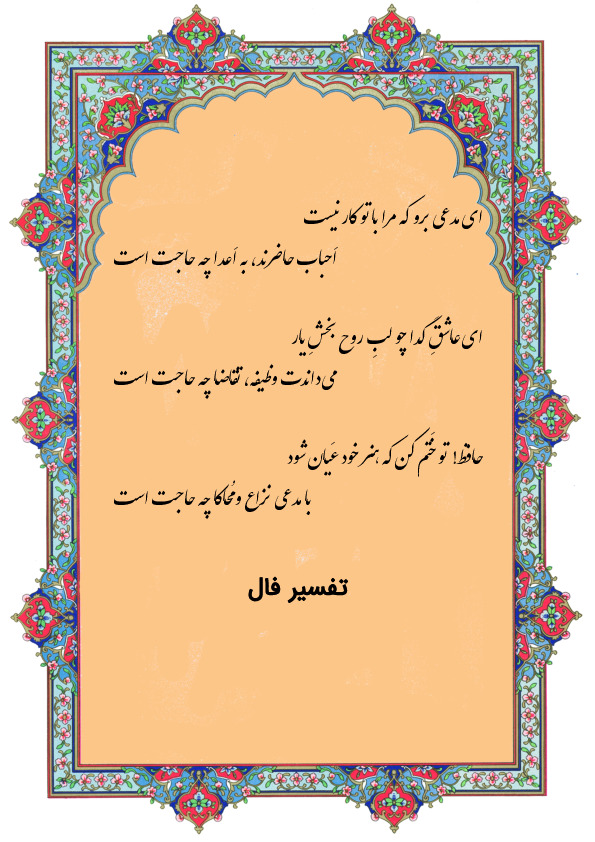 ای مدعی برو که مرا با تو کار نیست
اَحباب حاضرند، به اَعدا چه حاجت است
ای عاشقِ گدا چو لبِ روح بخشِ یار
می‌داندت وظیفه، تقاضا چه حاجت است
حافظ! تو خَتم کن که هنر خود عَیان شود
با مدعی نزاع و مُحاکا چه حاجت است
تفسیر فال